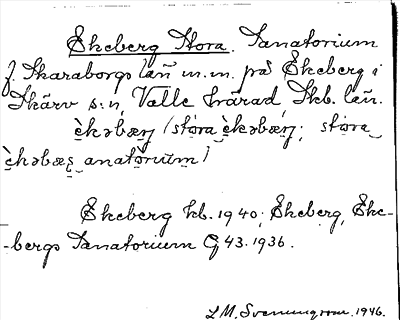 Ekeberg Stora. Sanatorium
f. Skaraborgs län m.m. på Ekeberg i
Skärv s:n, Valle härad, Skb. län.
èkəbærj (stora èkəbærj; stora
èkəbæs anatòrium)
Ekeberg kb. 1940; Ekeberg, Eke-
-bergs Sanatorium G 43. 1936.
L.M. Svenungsson. 1946.